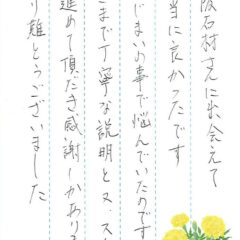 阪石材さんに出会えて
当に良かったです
じまいの事で悩んでいたのです
こまで丁寧な説明と又、ス
進めて頂だき感謝しかありま
り難とうございました